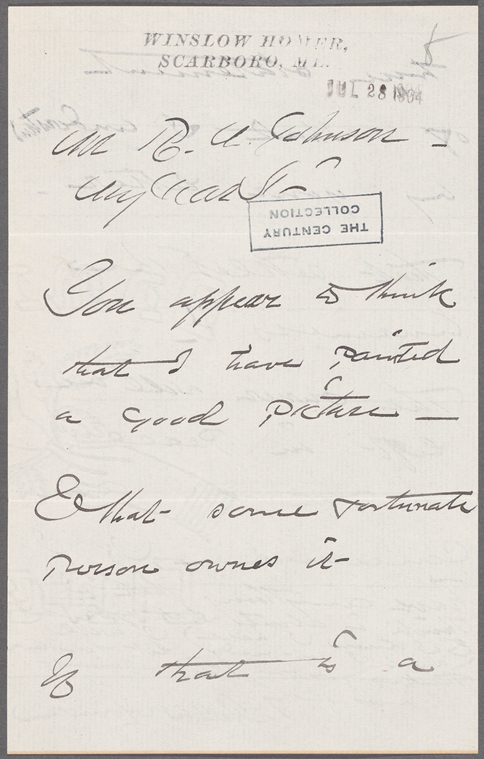 WINSLOW HOMER,
SCARBORO, ME.
JUL 28 1904
Mr R. U. Johnson —
My Dear Sir —
THE CENTURY
COLLECTION
You appear to think
that I have painted
a good picture —
& that some fortunate
person ownes it —
If that is a